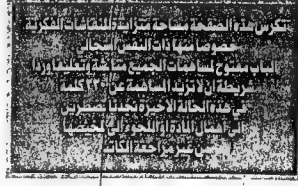 تكرس هذه الصفحة مساحة متزايدة للنقاشات الفكرية
خصوصا منها ذات النفس السجالي
الباب مفتوح لمساهمات الجميع مناقشة وتعليقا وردا
شريطة ان لا تزيد المساهمة عن كلمة
في هذه الحالة الاخيرة مضطرين
الى اهمال المادة او العمل على تلخيصها